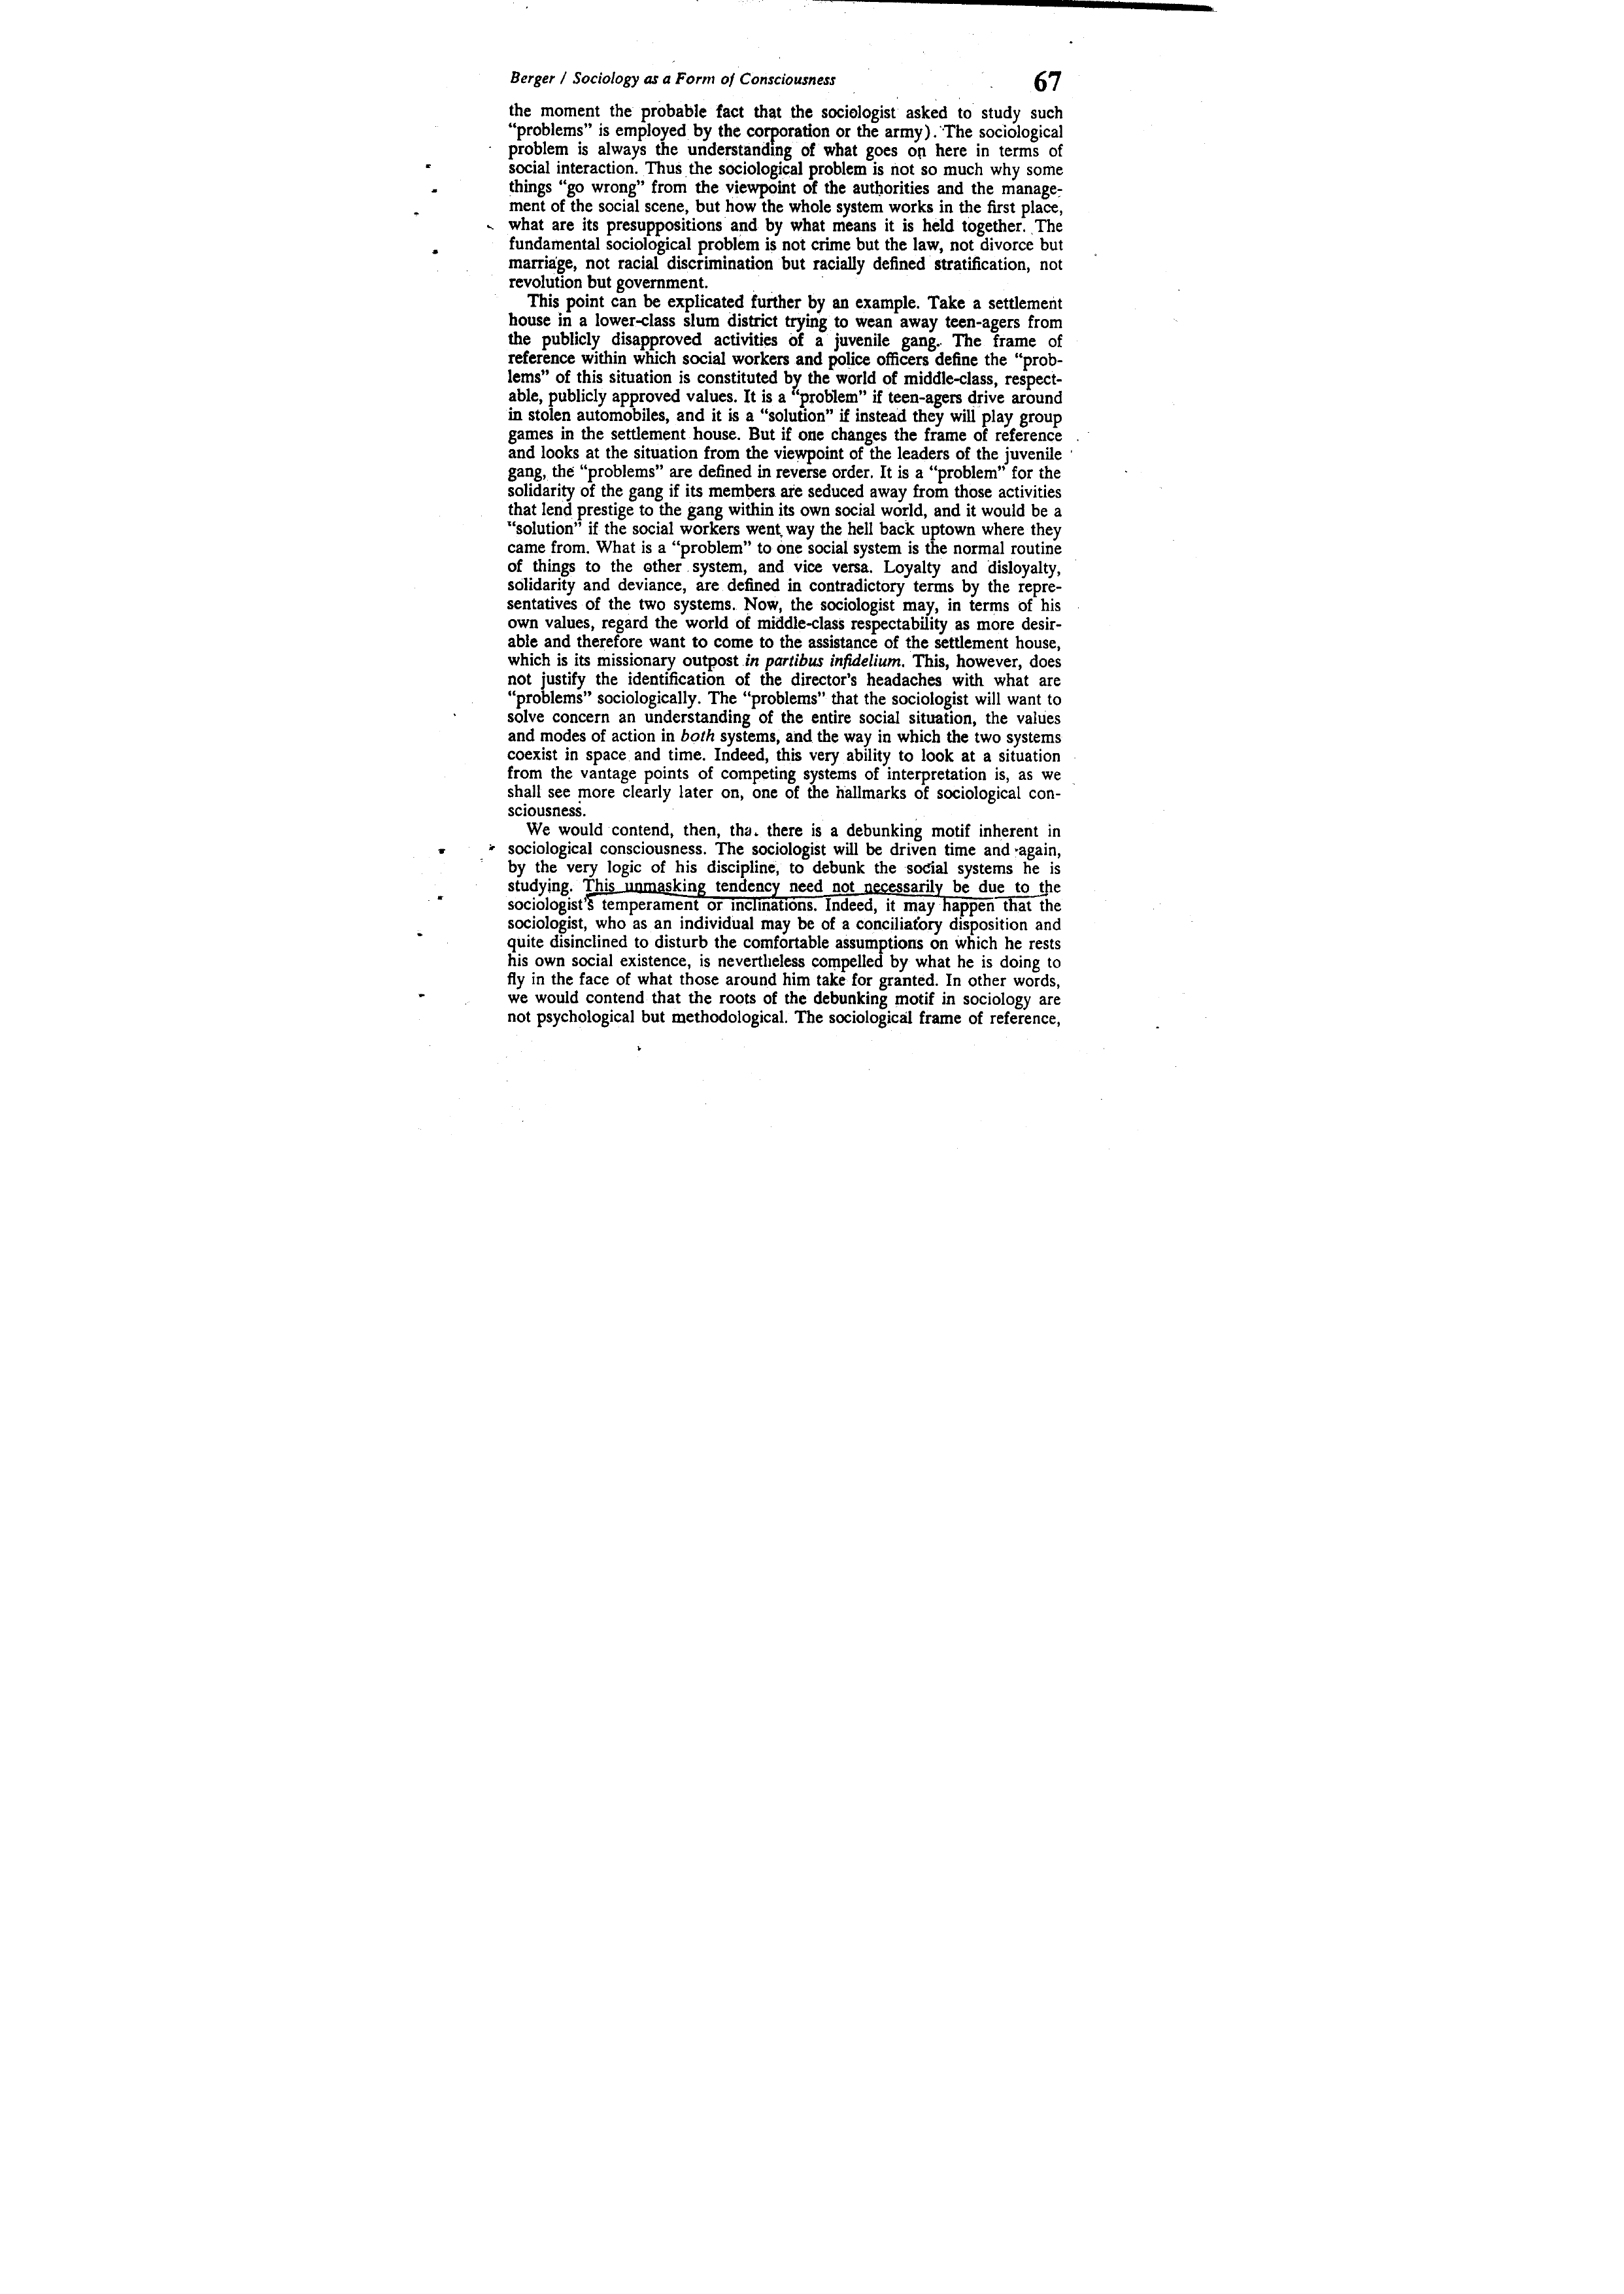 Berger / Sociology as a Form of Consciousness 67
the moment the probable fact that the sociologist asked to study such
“problems” is employed by the corporation or the army). The sociological
problem is always the understanding of what goes on here in terms of
social interaction. Thus the sociological problem is not so much why some
things “go wrong” from the viewpoint of the authorities and the manage-
ment of the social scene, but how the whole system works in the first place,
what are its presuppositions and by what means it is held together. The
fundamental sociological problem is not crime but the law, not divorce but
marriage, not racial discrimination but racially defined stratification, not
revolution but government.
This point can be explicated further by an example. Take a settlement
house in a lower-class slum district trying to wean away teen-agers from
the publicly disapproved activities of a juvenile gang. The frame of
reference within which social workers and police officers define the “prob-
lems” of this situation is constituted by the world of middle-class, respect-
able, publicly approved values. It is a “problem” if teen-agers drive around
in stolen automobiles, and it is a “solution” if instead they will play group
games in the settlement house. But if one changes the frame of reference
and looks at the situation from the viewpoint of the leaders of the juvenile
gang, the “problems” are defined in reverse order. It is a “problem” for the
solidarity of the gang if its members are seduced away from those activities
that lend prestige to the gang within its own social world, and it would be a
“solution” if the social workers went way the hell back uptown where they
came from. What is a “problem” to one social system is the normal routine
of things to the other system, and vice versa. Loyalty and disloyalty,
solidarity and deviance, are defined in contradictory terms by the repre-
sentatives of the two systems. Now, the sociologist may, in terms of his
own values, regard the world of middle-class respectability as more desir-
able and therefore want to come to the assistance of the settlement house,
which is its missionary outpost in partibus infidelium. This, however, does
not justify the identification of the director's headaches with what are
“problems” sociologically. The “problems” that the sociologist will want to
solve concern an understanding of the entire social situation, the values
and modes of action in both systems, and the way in which the two systems
coexist in space and time. Indeed, this very ability to look at a situation
from the vantage points of competing systems of interpretation is, as we
shall see more clearly later on, one of the hallmarks of sociological con-
sciousness.
We would contend, then, tha. there is a debunking motif inherent in
sociological consciousness. The sociologist will be driven time and again,
by the very logic of his discipline, to debunk the social systems he is
studying. This unmasking tendency need not necessarily be due to the
sociologist's temperament or inclinations. Indeed, it may happen that the
sociologist, who as an individual may be of a conciliatory disposition and
quite disinclined to disturb the comfortable assumptions on which he rests
his own social existence, is nevertheless compelled by what he is doing to
fly in the face of what those around him take for granted. In other words,
we would contend that the roots of the debunking motif in sociology are
not psychological but methodological. The sociological frame of reference,